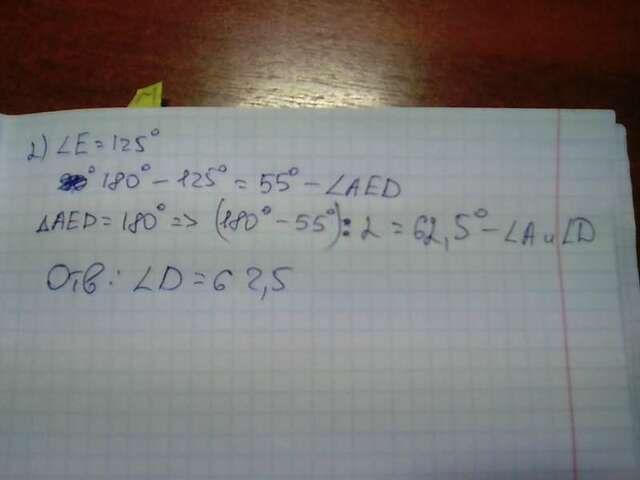 2) ∠E=125°
180° - 125° = 55° - ∠AED
△AED = 180° => (180° - 55°) : 2 = 62,5° - ∠A и ∠D
Отв: ∠D = 62,5